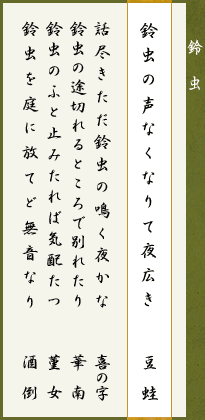 鈴虫
鈴虫の声なくなりて夜広き 豆蛙
話尽きただ鈴虫の鳴く夜かな 喜の字
鈴虫の途切れるところで別れたり 華南
鈴虫のふと止みたれば気配たつ 菫女
鈴虫を庭に放てど無音なり 酒倒